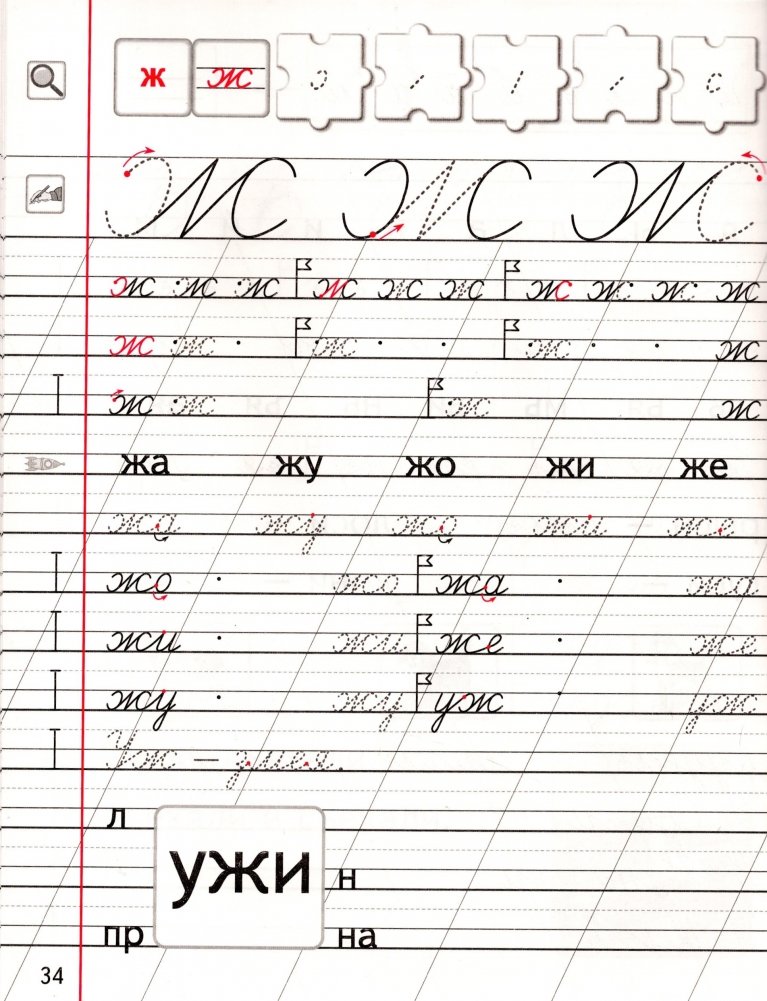 ж ж
ж ж ж
ж ж ж ж ж ж ж ж ж ж
ж ж ж ж ж
ж ж ж ж
жа жу жо жи же
жа жу жо жи же
жо жо жа жа
жи жи же же
жу жу уж уж
Уж – змея.
л
ужи н
пр на
34